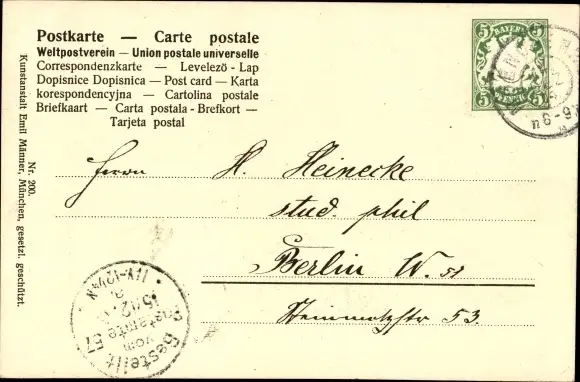 Postkarte — Carte postale
Weltpostverein — Union postale universelle
Correspondenzkarte — Levelező-Lap
Dopisnice Dopisnica — Post card — Karta
korespondencyjna — Cartolina postale
Briefkaart — Carta postala - Brefkort —
Tarjeta postal
Kunstanstalt Emil Männer, München, gesetzl. geschützt.
Nr. 200.
5 BAYERN 5
5 PFENNIG 5
6-9 N
Herrn H. Heinecke
stud. phil
Berlin W. 57
Steinmetzstr 53.
Bestellt
vom
Postamte 57
15/12
11¼-12¼ N